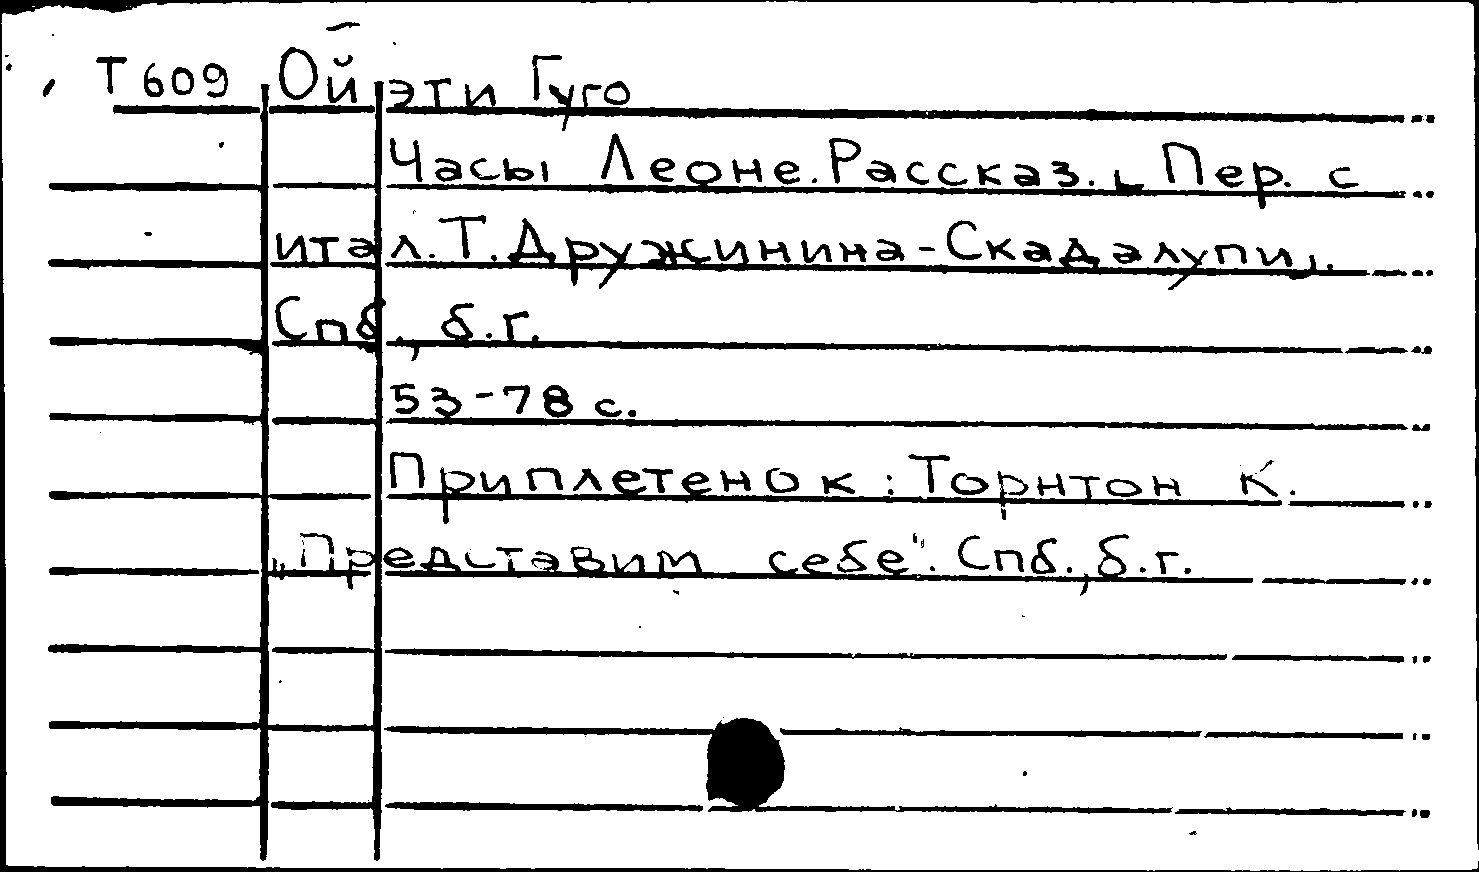 Т609 Ойэти Гуго
Часы Леоне. Рассказ. Пер. с
итал. Т. Дружинина-Скадалупи.
Спб., б.г.
53-78 с.
Приплетенок: Торнтон К.
„Представим себе". Спб., б.г.